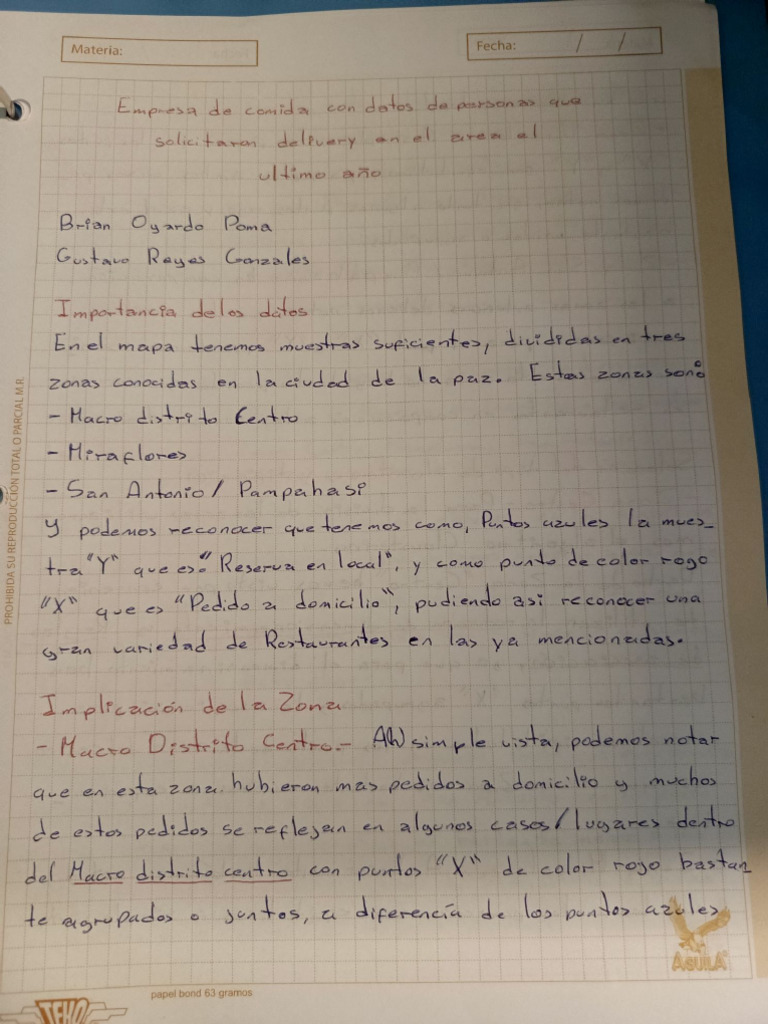 Materia:
Fecha: / /
Empresa de comida con datos de personas que
solicitaron delivery en el area el
ultimo año
Brian Oyardo Poma
Gustavo Reyes Gonzales
Importancia de los datos
En el mapa tenemos muestras suficientes, divididas en tres
zonas conocidas en la ciudad de la paz. Estas zonas son:
- Macro distrito Centro
- Miraflores
- San Antonio / Pampahasi
Y podemos reconocer que tenemos como, Puntos azules la mues-
tra "Y" que es: "Reserva en local", y como punto de color rogo
"X" que es "Pedido a domicilio", pudiendo asi reconocer una
gran variedad de Restaurantes en las ya mencionadas.
Implicación de la Zona
- Macro Distrito Centro.- A simple vista, podemos notar
que en esta zona hubieron mas pedidos a domicilio y muchos
de estos pedidos se reflejan en algunos casos/lugares dentro
del Macro distrito centro con puntos "X" de color rogo bastan
te agrupados o juntos, a diferencia de los puntos azules
PROHIBIDA SU REPRODUCCION TOTAL O PARCIAL M.R.
AGUILA
TEHO
papel bond 63 gramos